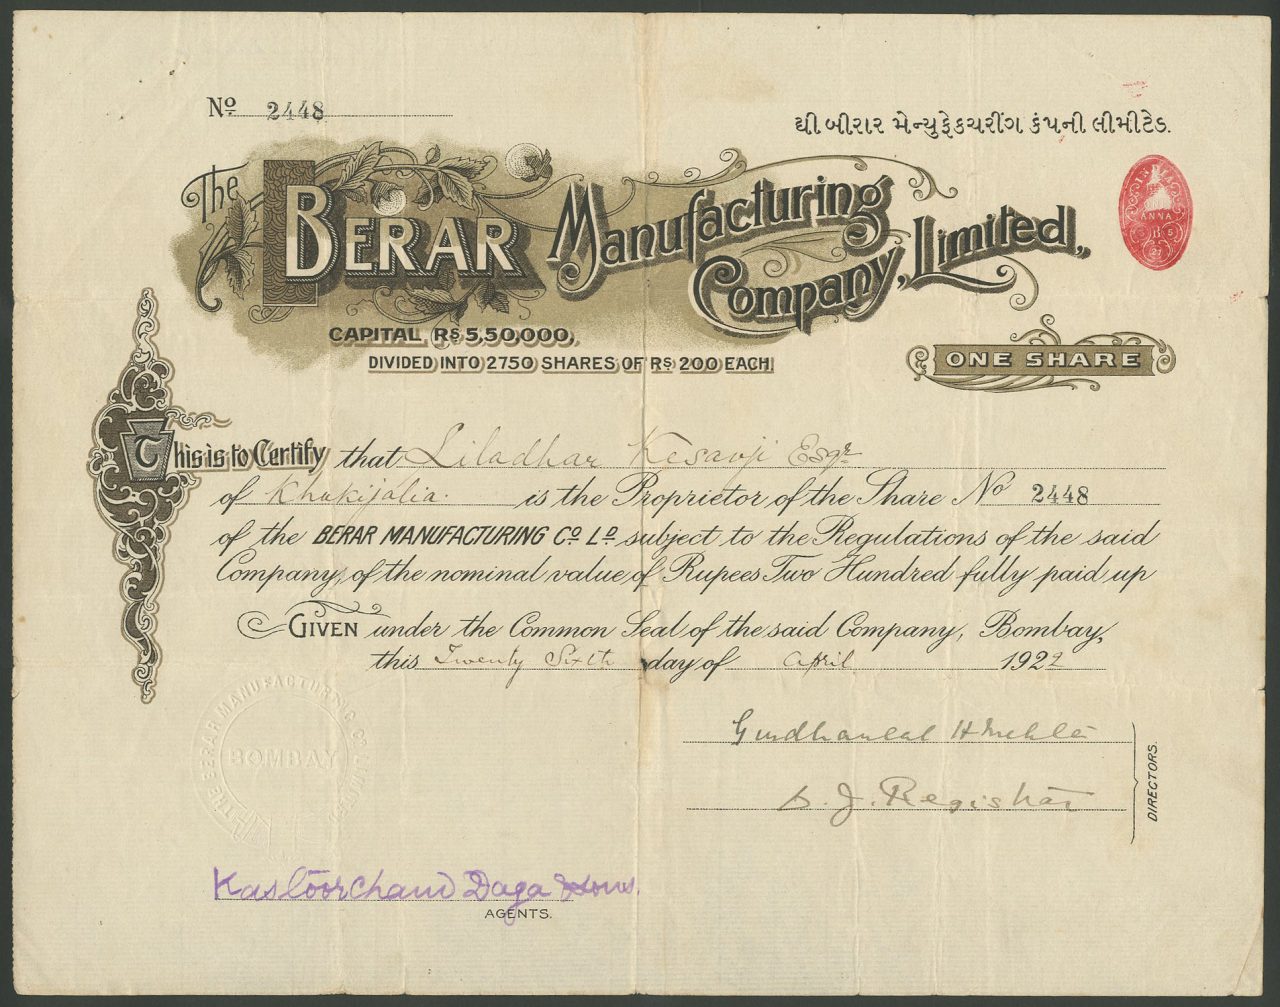 No 2448
ધી બીરાર મેન્યુફેકચરીંગ કંપની લીમીટેડ.
The BERAR Manufacturing Company, Limited.,
INDIA
ANNA
CAPITAL Rs 5,50,000,
DIVIDED INTO 2750 SHARES OF Rs 200 EACH.
ONE SHARE
This is to Certify that Liladhar Kesavji Esqr
of Khakijalia. is the Proprietor of the Share No 2448
of the BERAR MANUFACTURING Co Ld subject to the Regulations of the said
Company, of the nominal value of Rupees Two Hundred fully paid up
GIVEN under the Common Seal of the said Company, Bombay,
this Twenty Sixth day of April 1922
THE BERAR MANUFACTURING
BOMBAY
D. J. Registrar
DIRECTORS.
Kastoorchand Daga & Sons.
AGENTS.